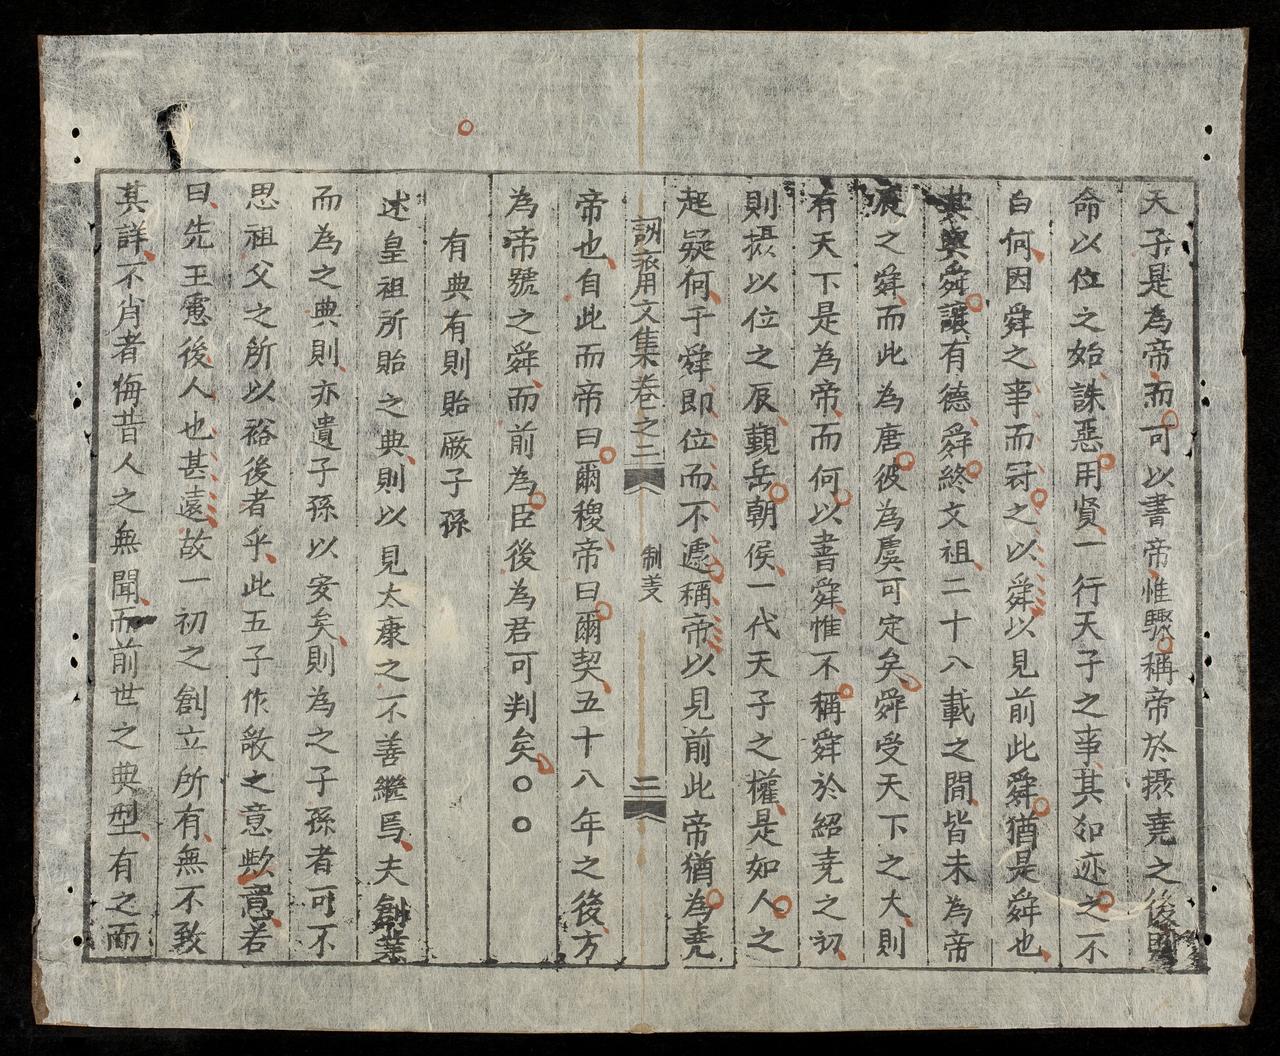 天子是為帝而可以書帝惟驟稱帝於攝堯之後則
命以位之始誅惡用賢一行天子之事其如迹之不
白何因舜之事而冠之以舜以見前此舜猶是舜也
其與舜讓有德舜終文祖二十八載之間皆未為帝
辰之舜而此為唐彼為虞可定矣舜受天下之大則
有天下是為帝而何以書舜惟不稱舜於紹堯之初
則攝以位之辰覲岳朝侯一代天子之權是如人之
起疑何于舜即位而不遽稱帝以見前此帝猶為堯
訓蒙用文集卷之三 制义 二
帝也自此而帝曰爾稷帝曰爾契五十八年之後方
為帝號之舜而前為臣後為君可判矣〇〇
有典有則貽厥子孫
述皇祖所貽之典則以見太康之不善繼焉夫創業
而為之典則亦遺子孫以安矣則為之子孫者可不
思祖父之所以裕後者乎此五子作歌之意歟意若
曰先王慮後人也甚遠故一初之創立所有無不致
其詳不肖者侮昔人之無聞而前世之典型有之而